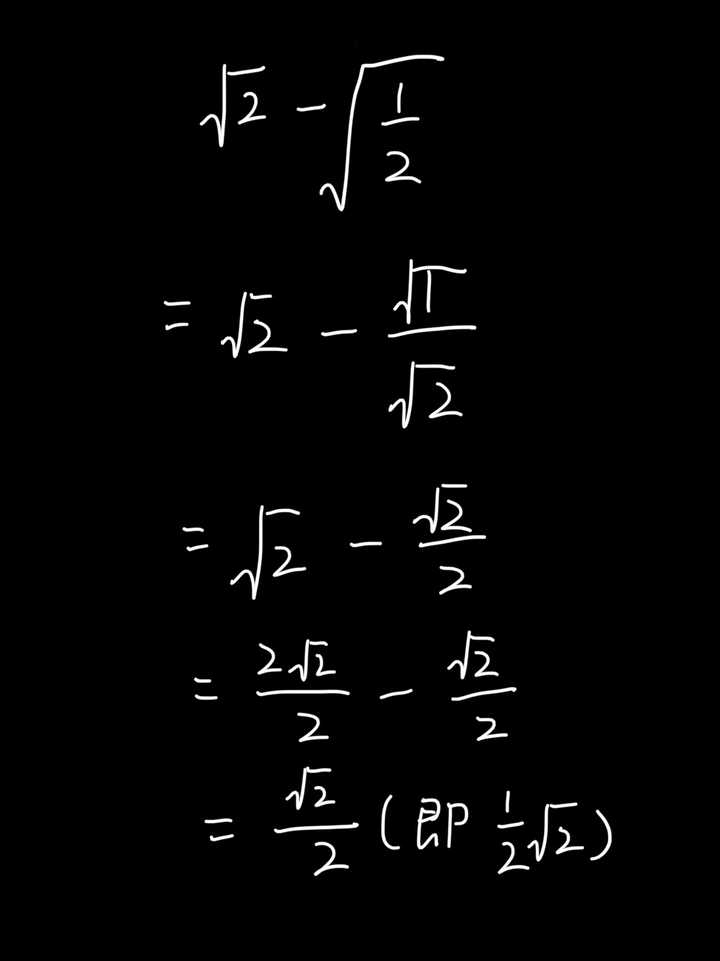 √2 − √(1/2)
= √2 − √1/√2
= √2 − √2/2
= 2√2/2 − √2/2
= √2/2 (即 1/2√2)